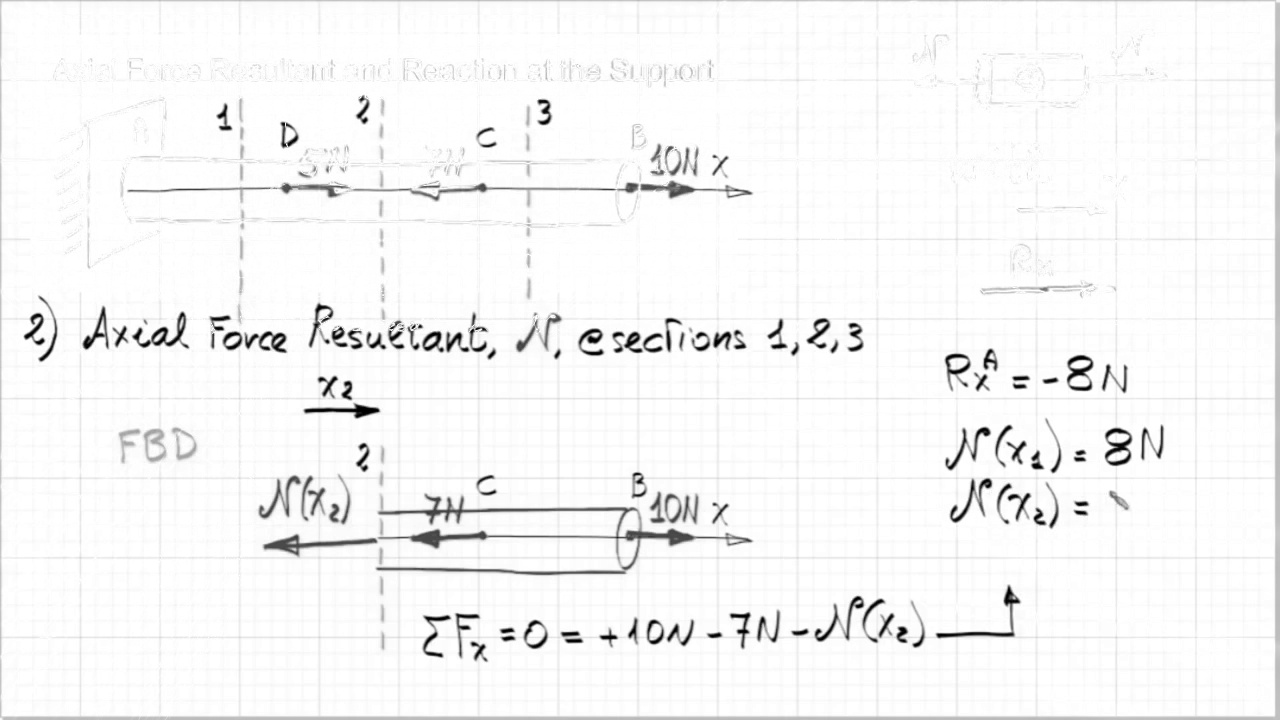 Axial Force Resultant and Reaction at the Support
1 2 3
A D 5N 7N C B 10N x
2) Axial Force Resultant, N, @sections 1, 2, 3
x2
FBD
2
N(x2) 7N C B 10N x
ΣFx = 0 = +10N - 7N - N(x2)
N N
Rx
RxA = -8N
N(x1) = 8N
N(x2) =